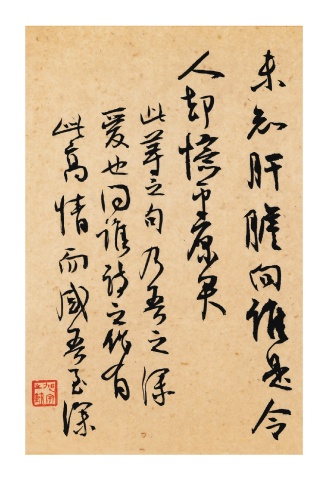 未知肝膽向誰是令
人却憶平原君
此等之句乃吾之深
愛也問誰詩之能有
此高情而感吾至深